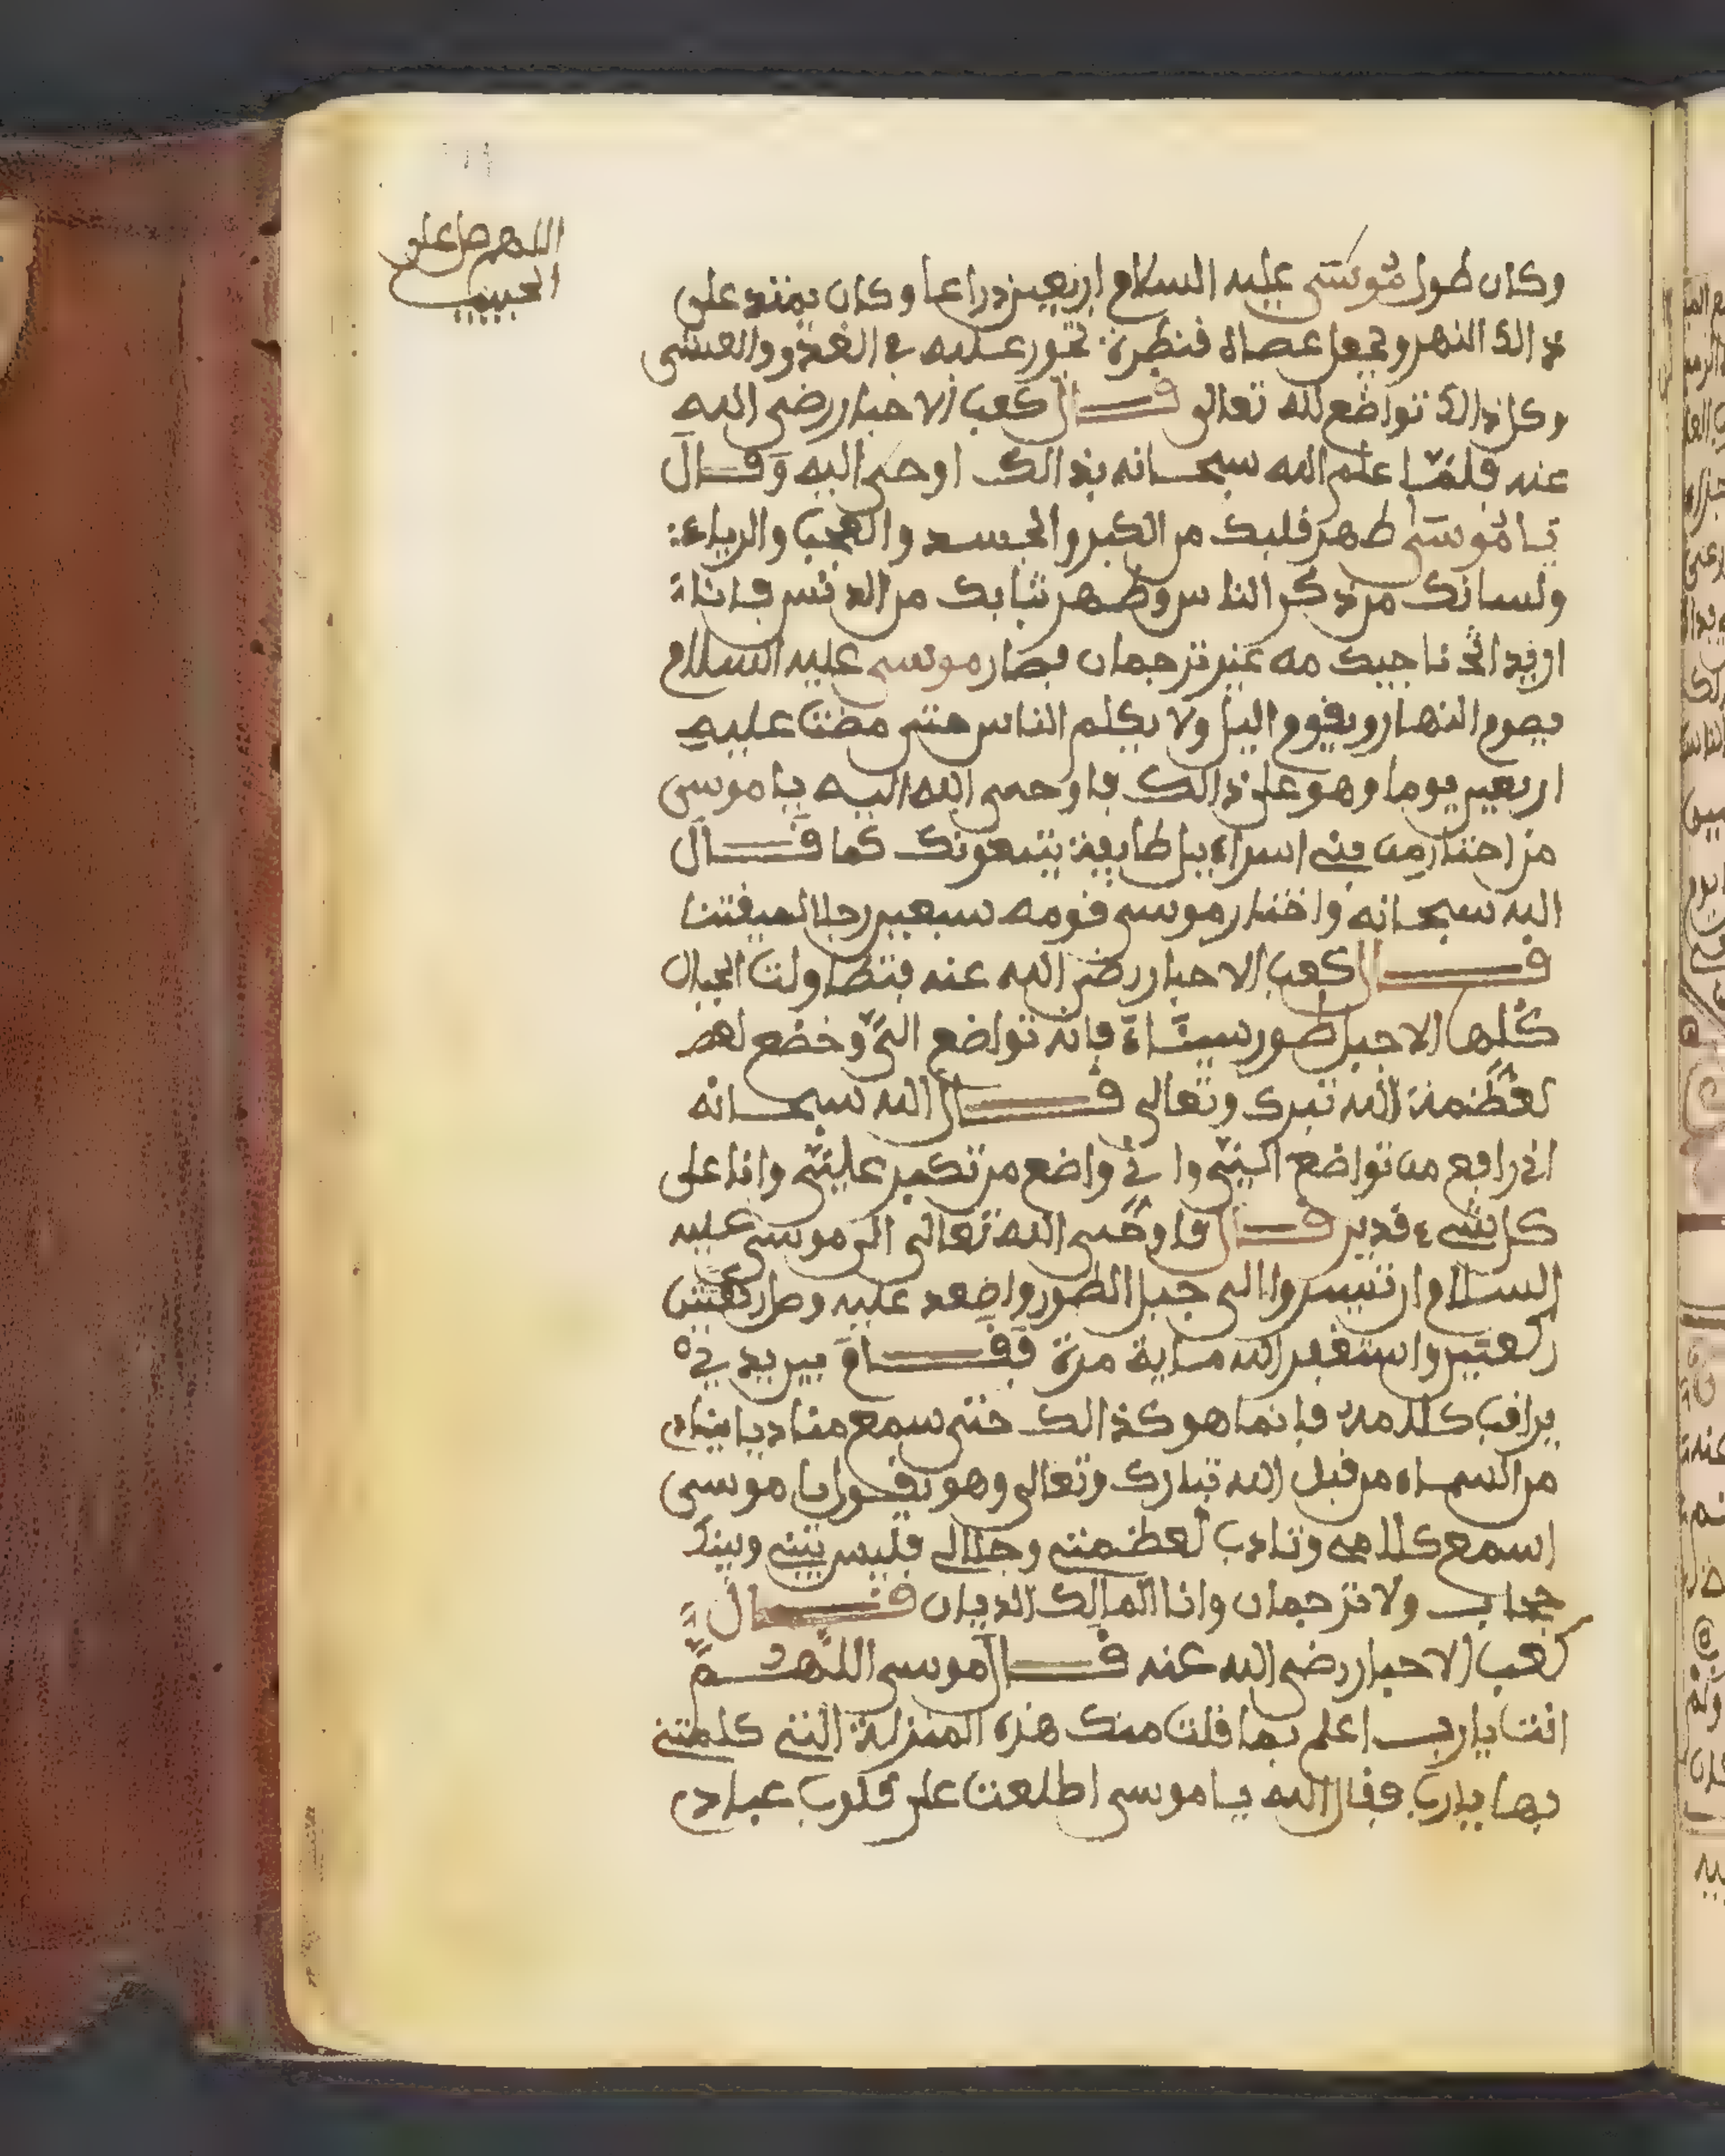 اللهم صل على
الحبيب
وكان طول موسى عليه السلام اربعين ذراعا وكان يمتد على
ذالك النهر ويجعل عصاه قنطرة تجوز عليه في الغدو والعشي
وكل ذالك تواضع لله تعالى قال كعب الاحبار رضي الله
عنه فلما علم الله سبحانه بذالك اوحى اليه وقال
يا موسى طهر قلبك من الكبر والحسد والعجب والرياء
ولسانك من ذكر الناس وطهر ثيابك من الدنس فانا
اريد ناجيك مه غير ترجمان فصار موسى عليه السلام
يصوم النهار ويقوم اليل ولا يكلم الناس حتى مضت عليه
اربعين يوما وهو على ذالك فاوحى الله اليه يا موسى
من اختار من بني اسراءيل طايفة يتبعونك كما قال
الله سبحانه واختار موسى قومه سبعين رجلا لميقتنا
قال كعب الاحبار رضي الله عنه فتطاولت الجبال
كلها الا جبل طور سيناء فانه تواضع الي وخضع
لعظمة الله تبرك وتعالى قال الله سبحانه
اني رافع من تواضع الي واني واضع من تكبر علي وانا على
كل شيء قدير قال فاوحى الله تعالى الى موسى عليه
السلام ان تسيروا الى جبل الطور واصعد عليه وصل
ركعتين واستغفر الله ماية مرة فقام بين يديه
يراقب كلامه فانما هو كذالك حتى سمع مناديا ينادي
من السماء من قبل الله تبارك وتعالى وهو يقول يا موسى
اسمع كلامي وتادب لعظمتي وجلالي فليس بيني وبينك
حجاب ولا ترجمان وانا المالك الديان قال
كعب الاحبار رضي الله عنه قال موسى اللهم
انت يارب اعلم بما قلت منك هذه المنزلة التي كلمتني
بها يارب فقال الله يا موسى اطلعت على قلوب عبادي